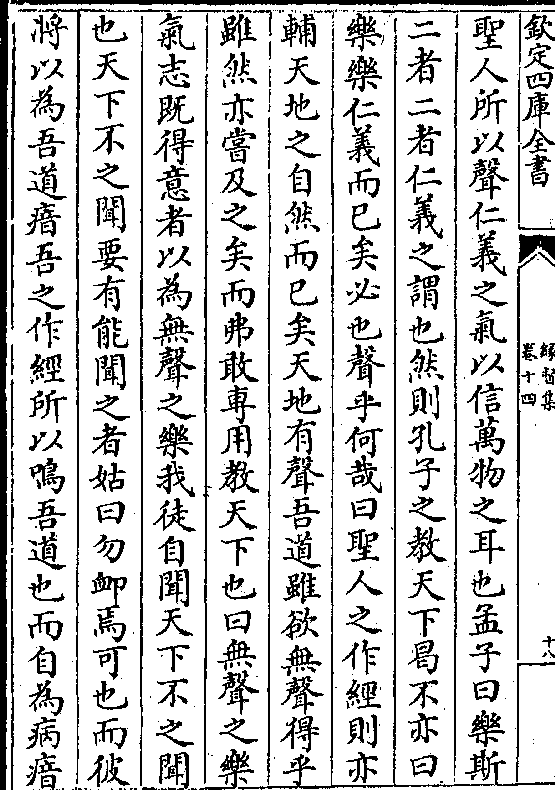 欽定四庫全書
緣督集
卷十四
十八
聖人所以聲仁義之氣以信萬物之耳也孟子曰樂斯
二者二者仁義之謂也然則孔子之教天下曷不亦曰
樂樂仁義而已矣必也聲乎何哉曰聖人之作經則亦
輔天地之自然而已矣天地有聲吾道雖欲無聲得乎
雖然亦嘗及之矣而弗敢專用教天下也曰無聲之樂
氣志既得意者以為無聲之樂我徒自聞天下不之聞
也天下不之聞要有能聞之者姑曰勿卹焉可也而彼
將以為吾道瘖吾之作經所以鳴吾道也而自為病瘖